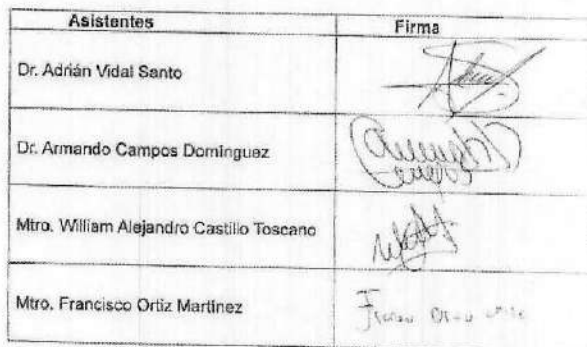 Asistentes Firma
Dr. Adrián Vidal Santo
Dr. Armando Campos Dominguez
Mtro. William Alejandro Castillo Toscano
Mtro. Francisco Ortiz Martinez